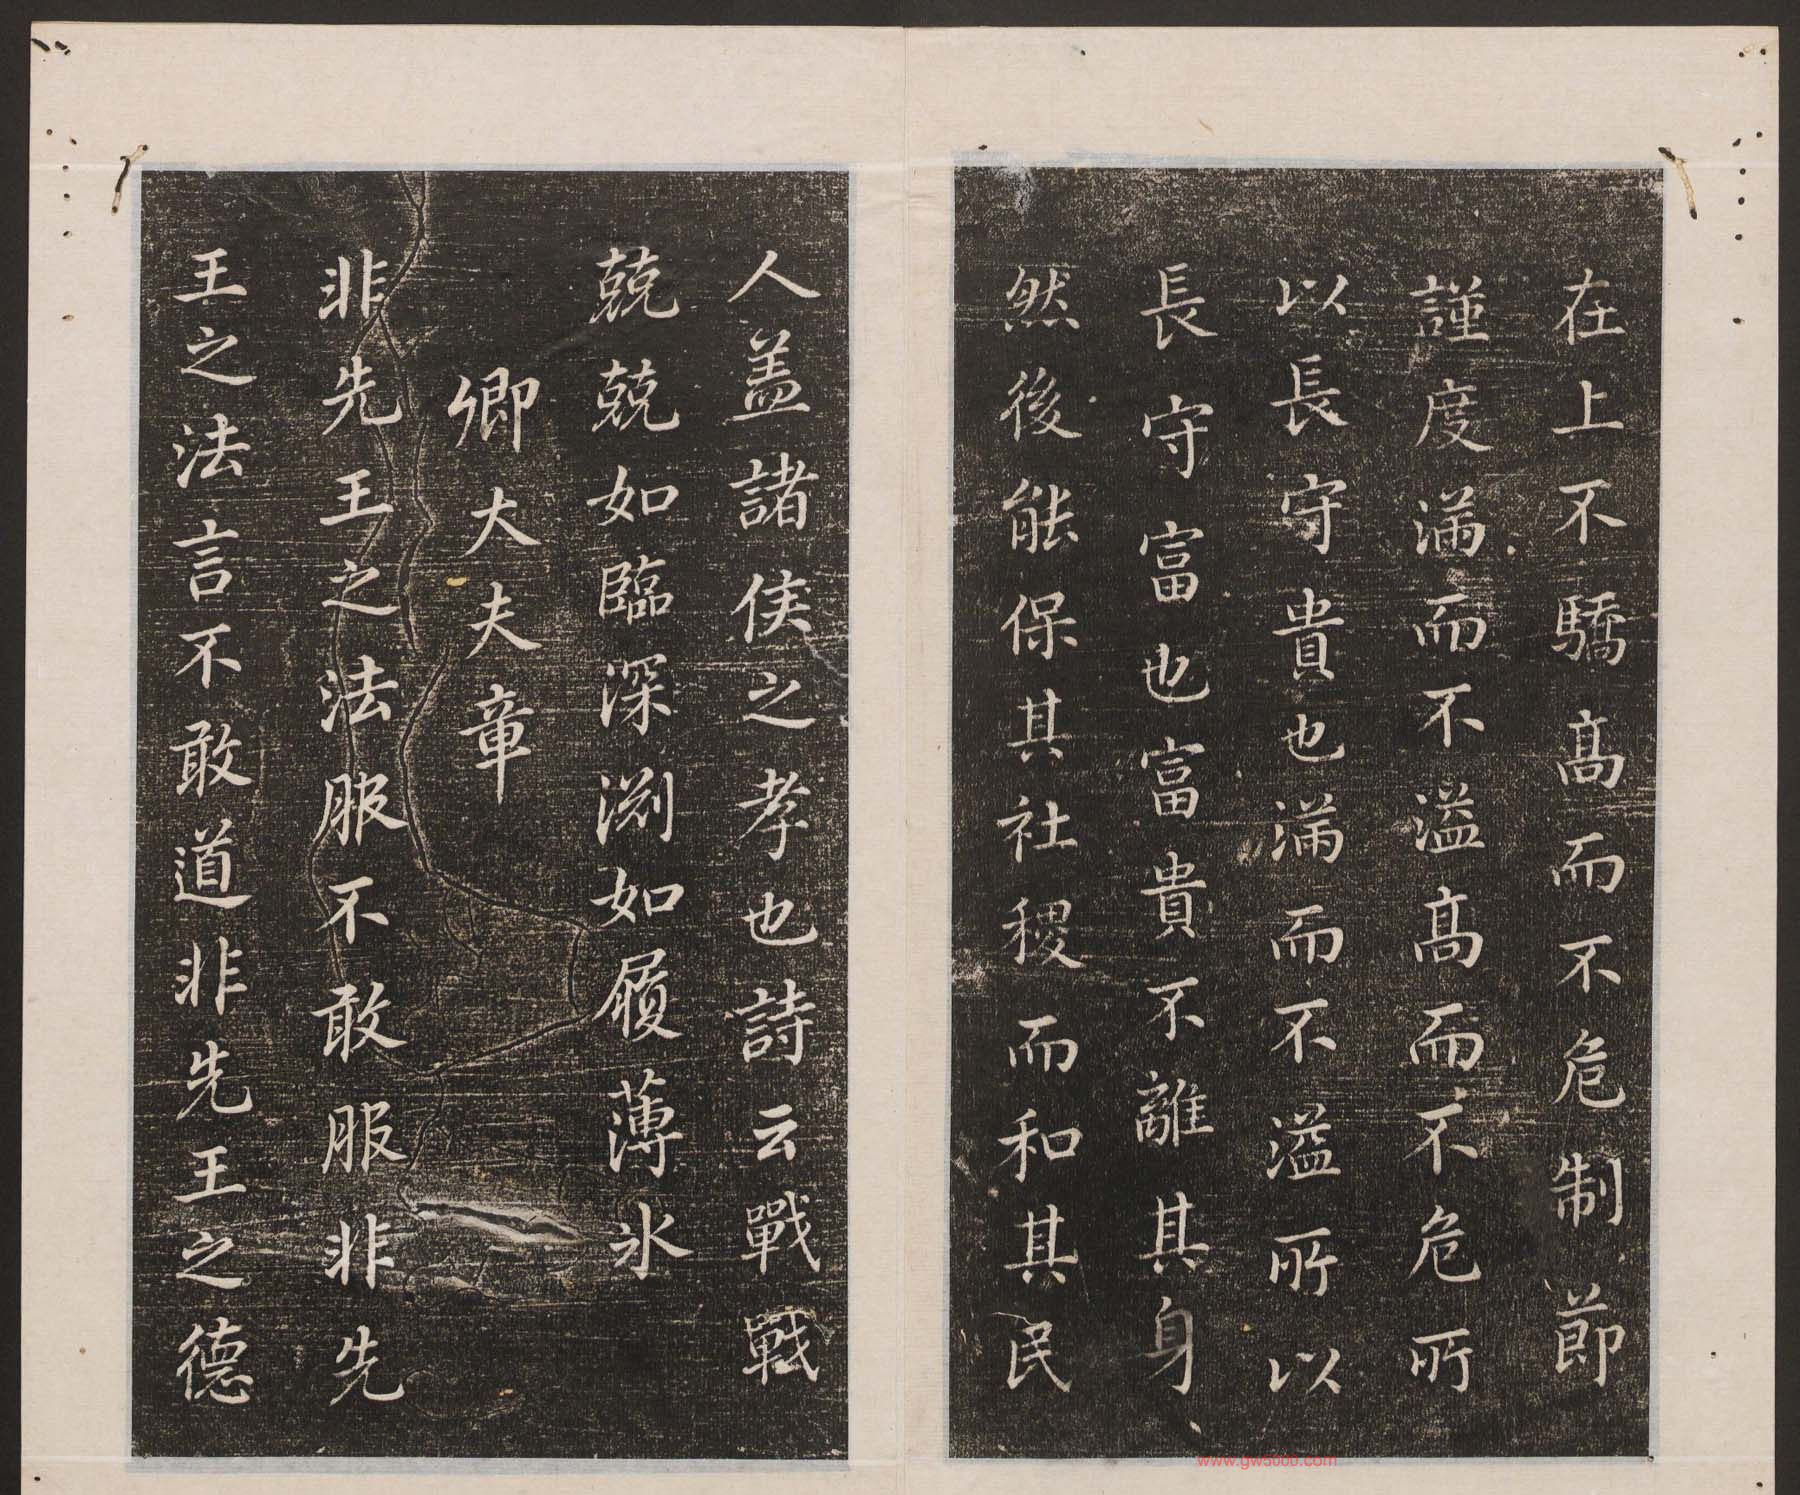 在上不驕高而不危制節
謹度滿而不溢高而不危所
以長守貴也滿而不溢所以
長守富也富貴不離其身
然後能保其社稷而和其民
人盖諸侯之孝也詩云戰戰
兢兢如臨深渊如履薄氷
卿大夫章
非先王之法服不敢服非先
王之法言不敢道非先王之德
www.gw5000.com